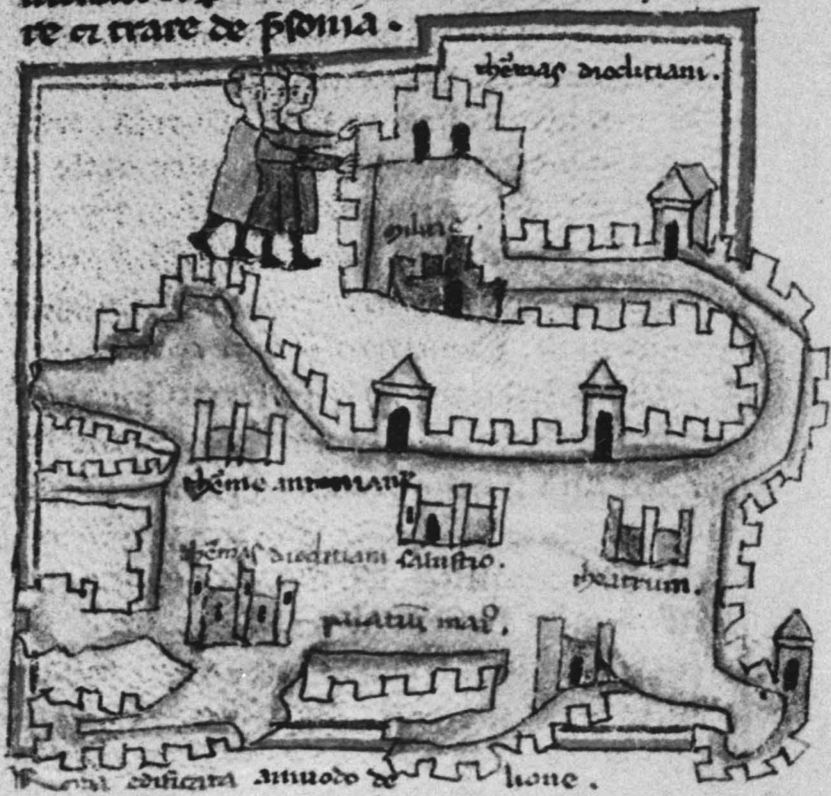 te et trare de psonia.
thermas diocliciani.
militie
therme antoniane
thermas diocliciani salustio.
theatrum.
palatiu maius.
Roma edificata amuodo de lione.